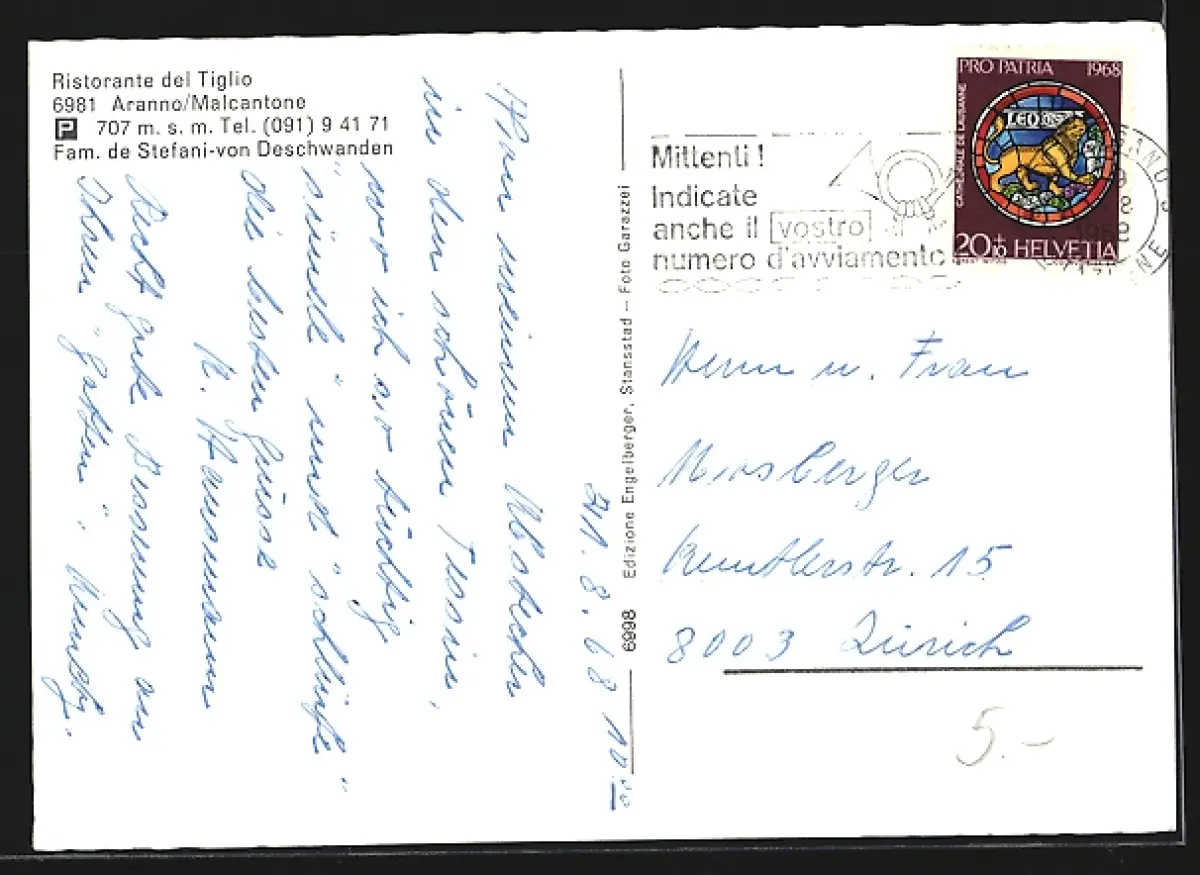 Ristorante del Tiglio
6981 Aranno/Malcantone
P 707 m. s. m. Tel. (091) 9 41 71
Fam. de Stefani-von Deschwanden
8. 68 10
Von meinem
in dem schönen Tessin,
wo ich so tüchtig
"sünele" und "schlüfe"
die besten Grüsse
Recht gute Besserung an
Ihren "Gatten".
6998 Edizione Engelberger, Stansstad – Foto Garazzei
Mittenti !
Indicate
anche il vostro
numero d'avviamento
PRO PATRIA 1968
CATHEDRALE DE LAUSANNE
LEO
20+10 HELVETIA
Herrn u. Frau
Mosberger
15
8003 Zürich
5.–